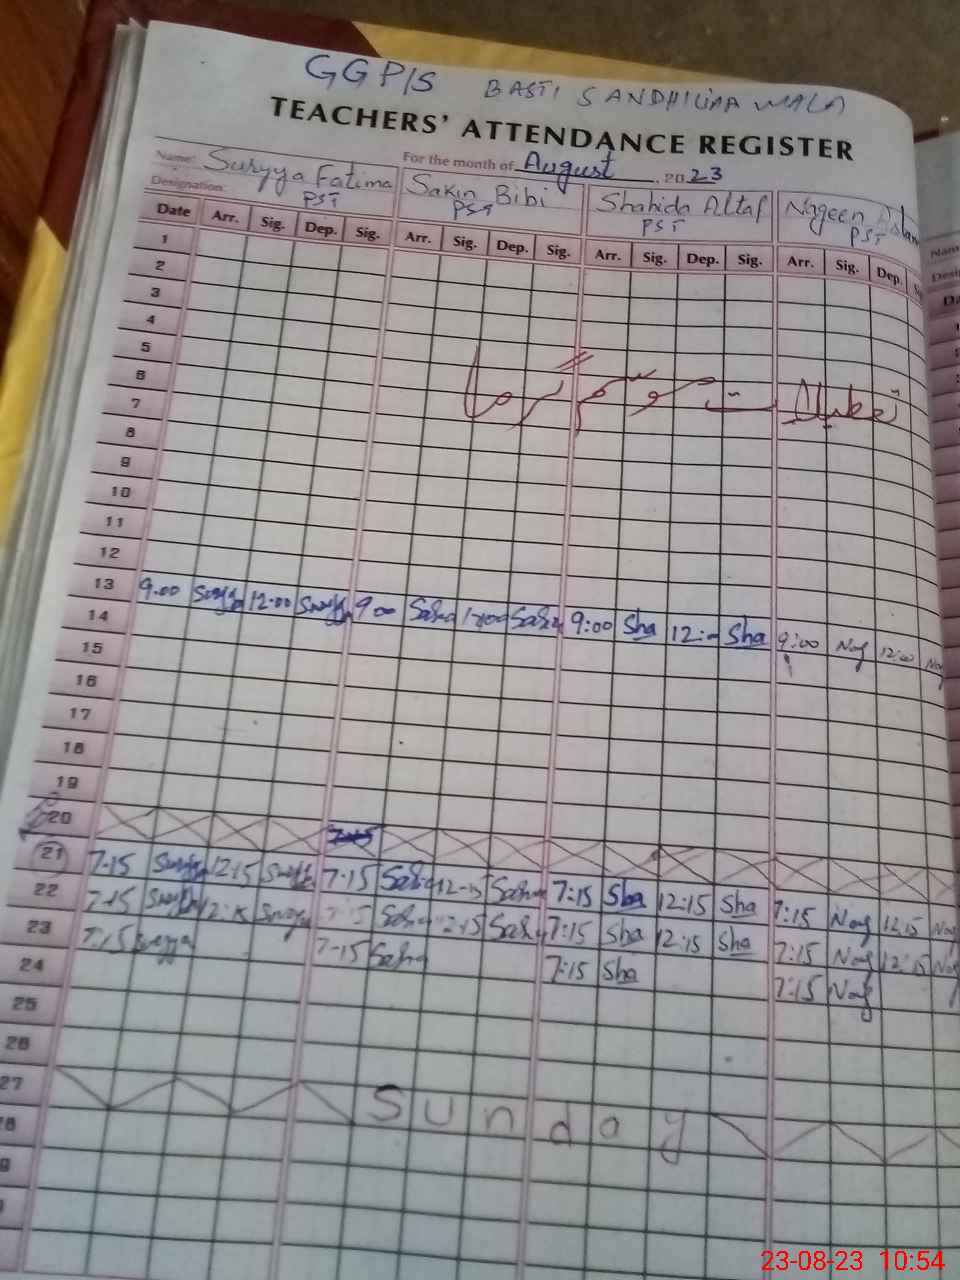 GGP/S BASTI SANDHILIAA WALA
TEACHERS' ATTENDANCE REGISTER
For the month of August, 2023
Name: Suryya Fatima Sakin Bibi Shahida Altaf Nageen
Designation: PST PST PST PST
Date Arr. Sig. Dep. Sig. Arr. Sig. Dep. Sig. Arr. Sig. Dep. Sig. Arr. Sig. Dep.
1
2
3
4
5
6
تعطیلات موسم گرما
7
8
9
10
11
12
13
14 9.00 12:00 9:00 9:00 Sha 12:- Sha 9:00 Nag 12:00 Nag
15
16
17
18
19
20
21 7-15 12:15 7-15 12-15 7:15 Sha 12:15 Sha 7:15 Nag 12:15 Nag
22 7-15 12:15 7-15 12:15 7:15 Sha 12:15 Sha 7:15 Nag 12:15 Nag
23 7:15 7-15 7:15 Sha 7:15 Nag
24
25
26
27 Sunday
23-08-23 10:54